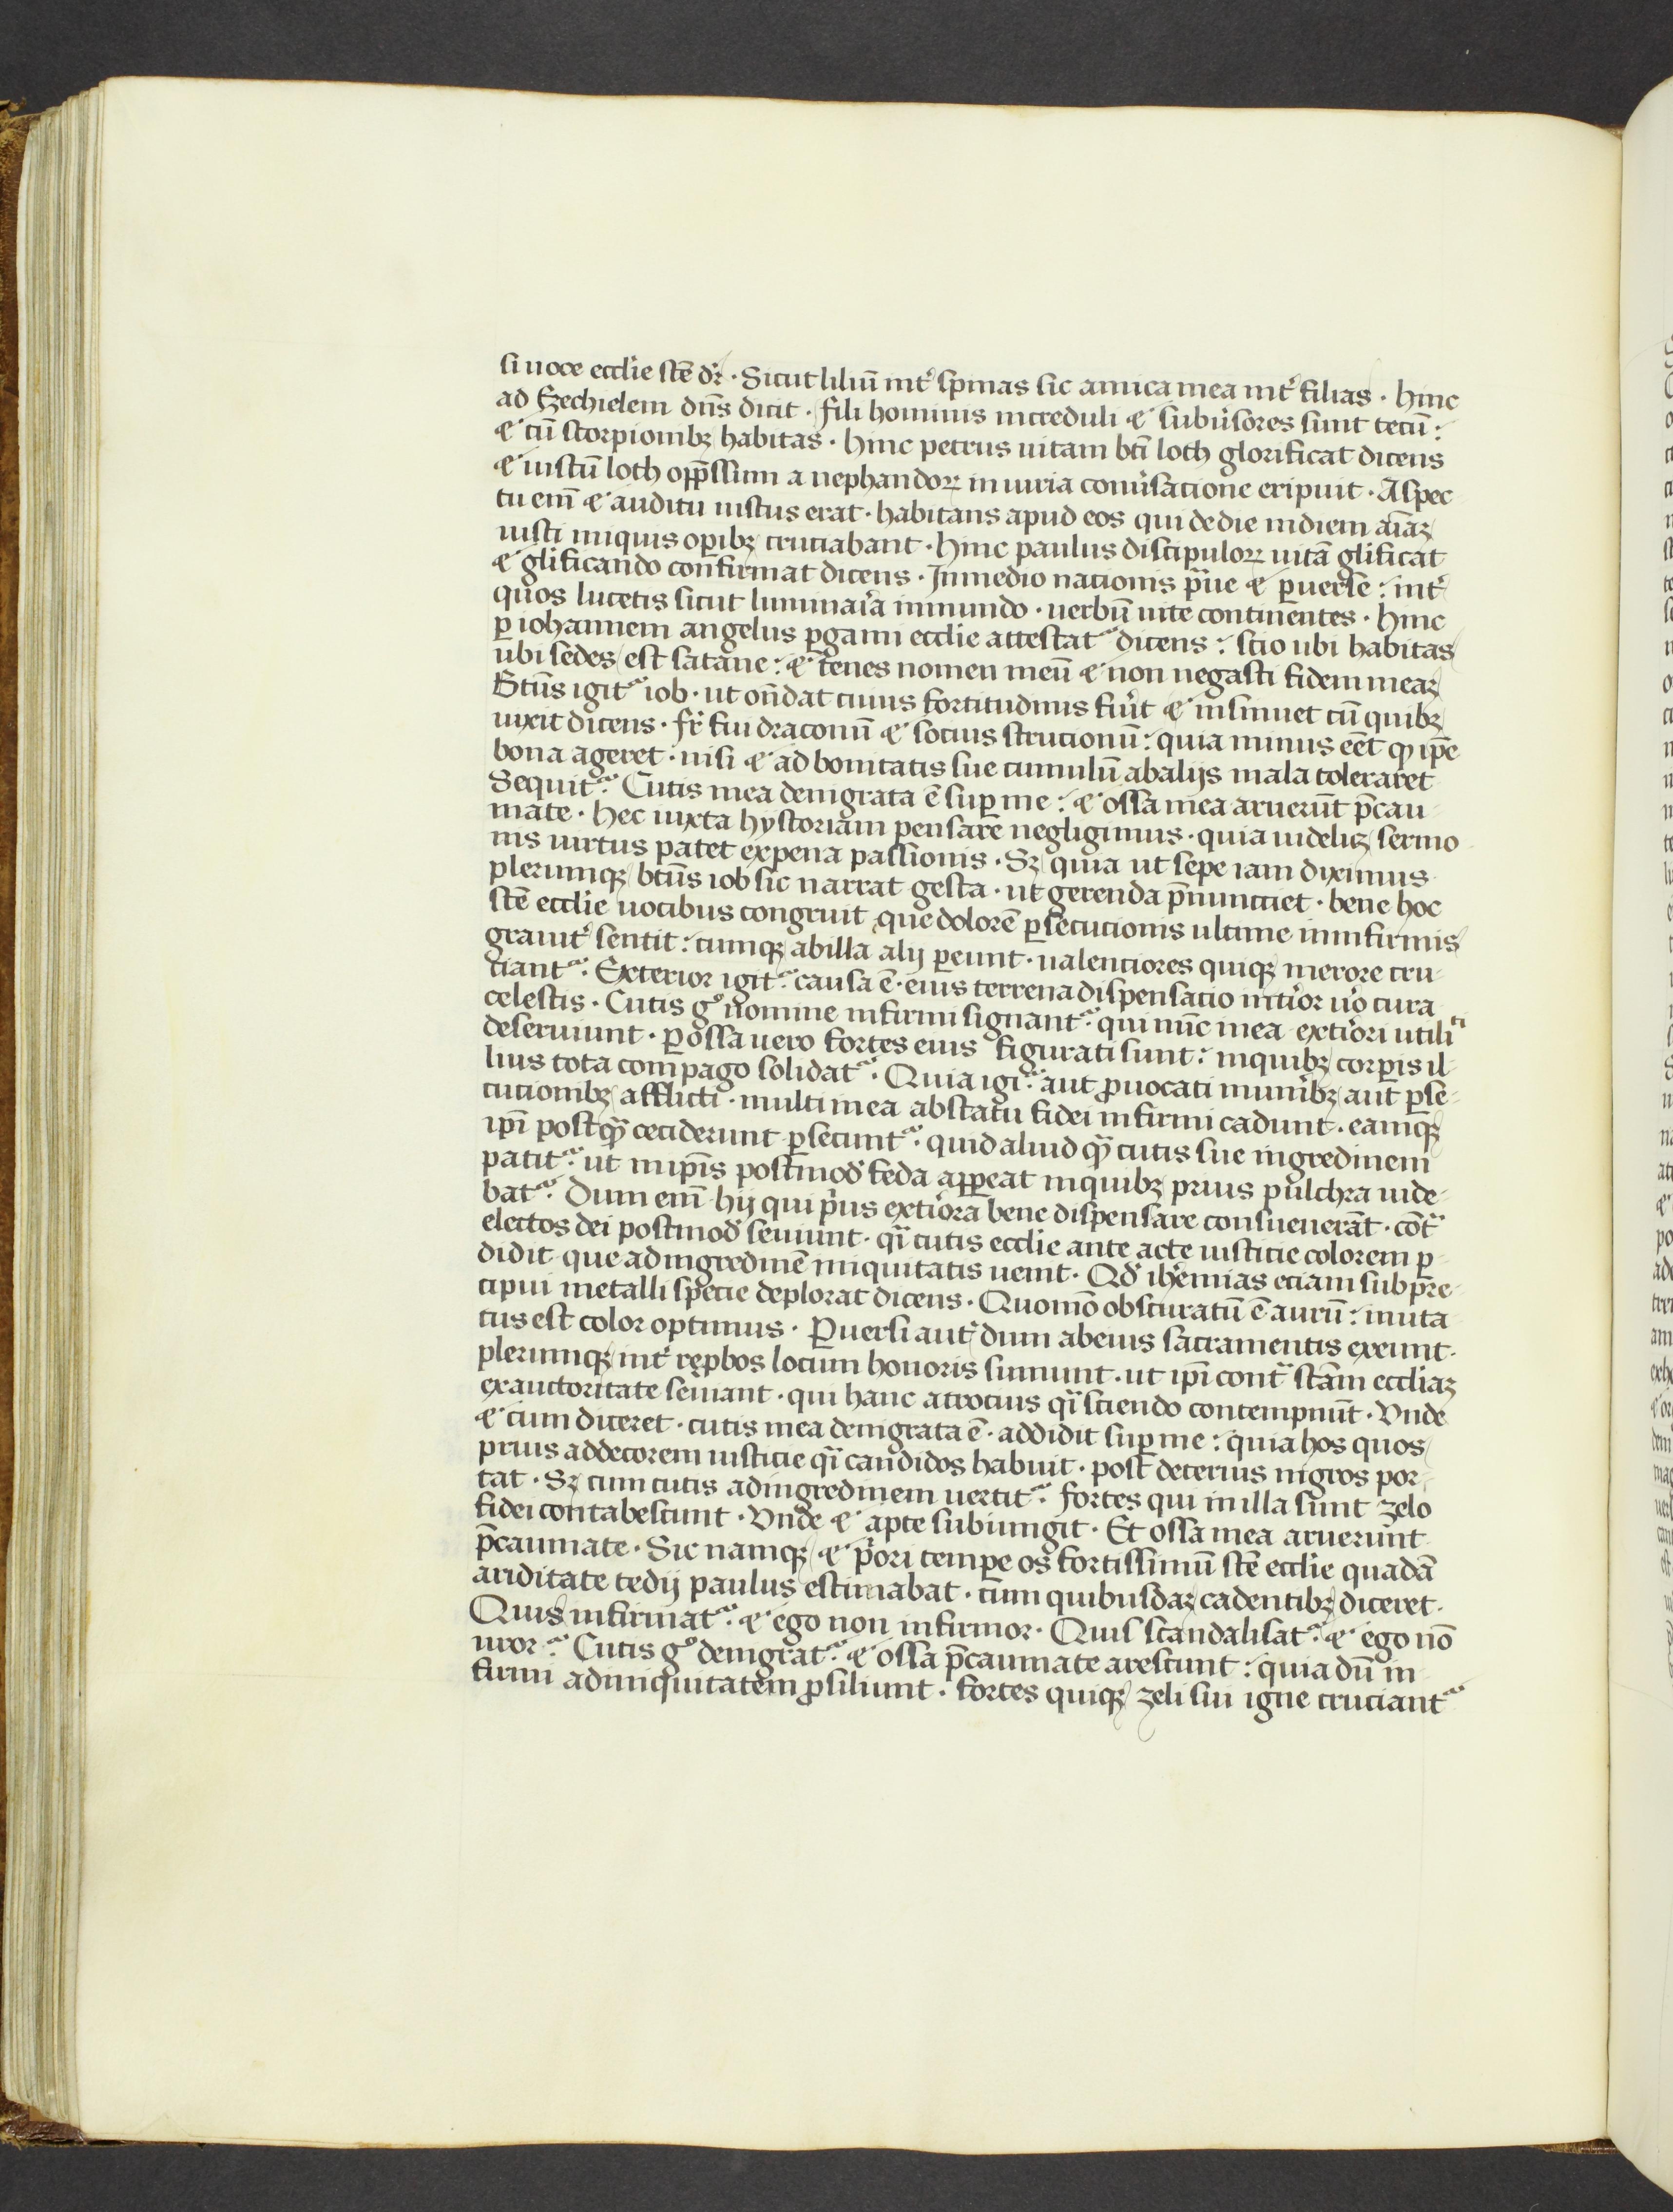 si uoce ecclie scē dr̄ · Sicut liliū int᷒ spinas sic amica mea int᷒ filias · Hinc
ad Ezechielem dn̄s dicit · fili hominis increduli ⁊ subu᷒sores sunt tecū :
⁊ cū scorpionibꝫ habitas · Hinc petrus uitam bt̄i loth glorificat dicens
⁊ iustū loth opp̄ssum a nephandoꝝ iniuria conu᷒sacione eripuit · Aspec
tu em̄ ⁊ auditu iustus erat · habitans apud eos qui de die indiem aīaꝫ
iusti iniquis opibꝫ cruciabant · Hinc paulus discipuloꝝ uitā gl̄ificat
⁊ gl̄ificando confirmat dicens · Inmedio nacionis p̄ue ⁊ ꝑuerse : int᷒
quos lucetis sicut luminar̄a inmundo · uerbū uite continentes · Hinc
ꝑ iohannem angelus ꝑgami ecclie attestat᷑ dicens : scio ubi habitas
ubi sedes est satane : ⁊ tenes nomen meū ⁊ non negasti fidem meaꝫ
Bt̄us igit᷑ iob · ut on̄dat cuius fortitudinis fu᷒it ⁊ insinuet cū quibꝫ
uixit dicens · fr̄ fui draconū ⁊ socius strucionū : quia minus eēt ꝙ ip̄e
bona ageret · nisi ⁊ ad bonitatis sue cumulū abalijs mala toleraret
Sequit᷑ · Cutis mea denigrata ē suꝑ me : ⁊ ossa mea aruerūt p̄cau-
mate · Hec iuxta hystoriam pensare negligimus · quia uidelicꝫ sermo
nis uirtus patet expena passionis · Sꝫ quia ut sepe iam diximus
plerumqꝫ bt̄us iob sic narrat gesta · ut gerenda p̄nunctiet · bene hoc
scē ecclie uocibus congruit que dolorē ꝑsecucionis ultime ininfirmis
grauit᷒ sentit : cumqꝫ abilla alij ꝑeunt · ualenciores quiqꝫ merore cru-
ciant᷑ · Exterior igit᷑ causa ē · eius terrena dispensatio int᷒ior u᷒o cura
celestis · Cutis gº nomine infirmi signant᷑ · qui nūc inea ext᷒iori utilitᵗⁱ
deseruiunt · ꝑ ossa uero fortes eius figurati sunt : inquibꝫ corꝑis il-
lius tota compago solidat᷑ · Quia igi᷑ · aut ꝓuocati mun᷒ibꝫ aut ꝑse-
cucionibꝫ afflicti · multi inea abstatu fidei infirmi cadunt · eamqꝫ
ip̄i postqꝫ̄ ceciderunt ꝑsecunt᷑ · quid aliud qꝫ̄ cutis sue ingredinem
patit᷑ · ut inip̄is postmod᷒ feda appeat inquibꝫ prius pulchra uide-
bat᷑ · Dum em̄ hij qui p̄us ext᷒iora bene dispensare consueuerāt · cōt᷒
electos dei postmod᷒ seuiunt · qᷓ cutis ecclie ante acte iusticie colorem ꝑ-
didit que ad ingredinē iniquitatis uenit · Qd᷒ ih᷒emias eciam sub pre-
cipui metalli specie deplorat dicens · Quomō obscuratū ē aurū : muta
tus est color optimus · Ꝑuersi aut᷒ dum abeius sacramentis exeunt ·
plerumqꝫ int᷒ reꝓbos locum honoris sumunt · ut ip̄i contᷓ scām eccliaꝫ
exauctoritate seuiant · qui hanc atrocius qᷓ sciendo contempnūt · Vnde
⁊ cum diceret · cutis mea denigrata ē · addidit suꝑ me : quia hos quos
prius addecorem iusticie qᷓ candidos habuit · post deterius nigros por-
tat · Sꝫ cum cutis adingredinem uertit᷑ · fortes qui in illa sunt zelo
fidei contabescunt · Vnde ⁊ apte subiungit · Et ossa mea aruerunt
p̄caumate · Sic namqꝫ ⁊ p̄ori tempe os fortissimū scē ecclie quadā
ariditate tedij paulus estimabat · cum quibusdaꝫ cadentibꝫ diceret ·
Quis infirmat᷑ · ⁊ ego non infirmor · Quis scandalisat᷑ · ⁊ ego nō
uror · Cutis gº denigrat᷑ · ⁊ ossa p̄caumate arescunt : quia dū in
firmi adiniquitatem ꝓsiliunt · fortes quiqꝫ zeli sui igne cruciant᷑